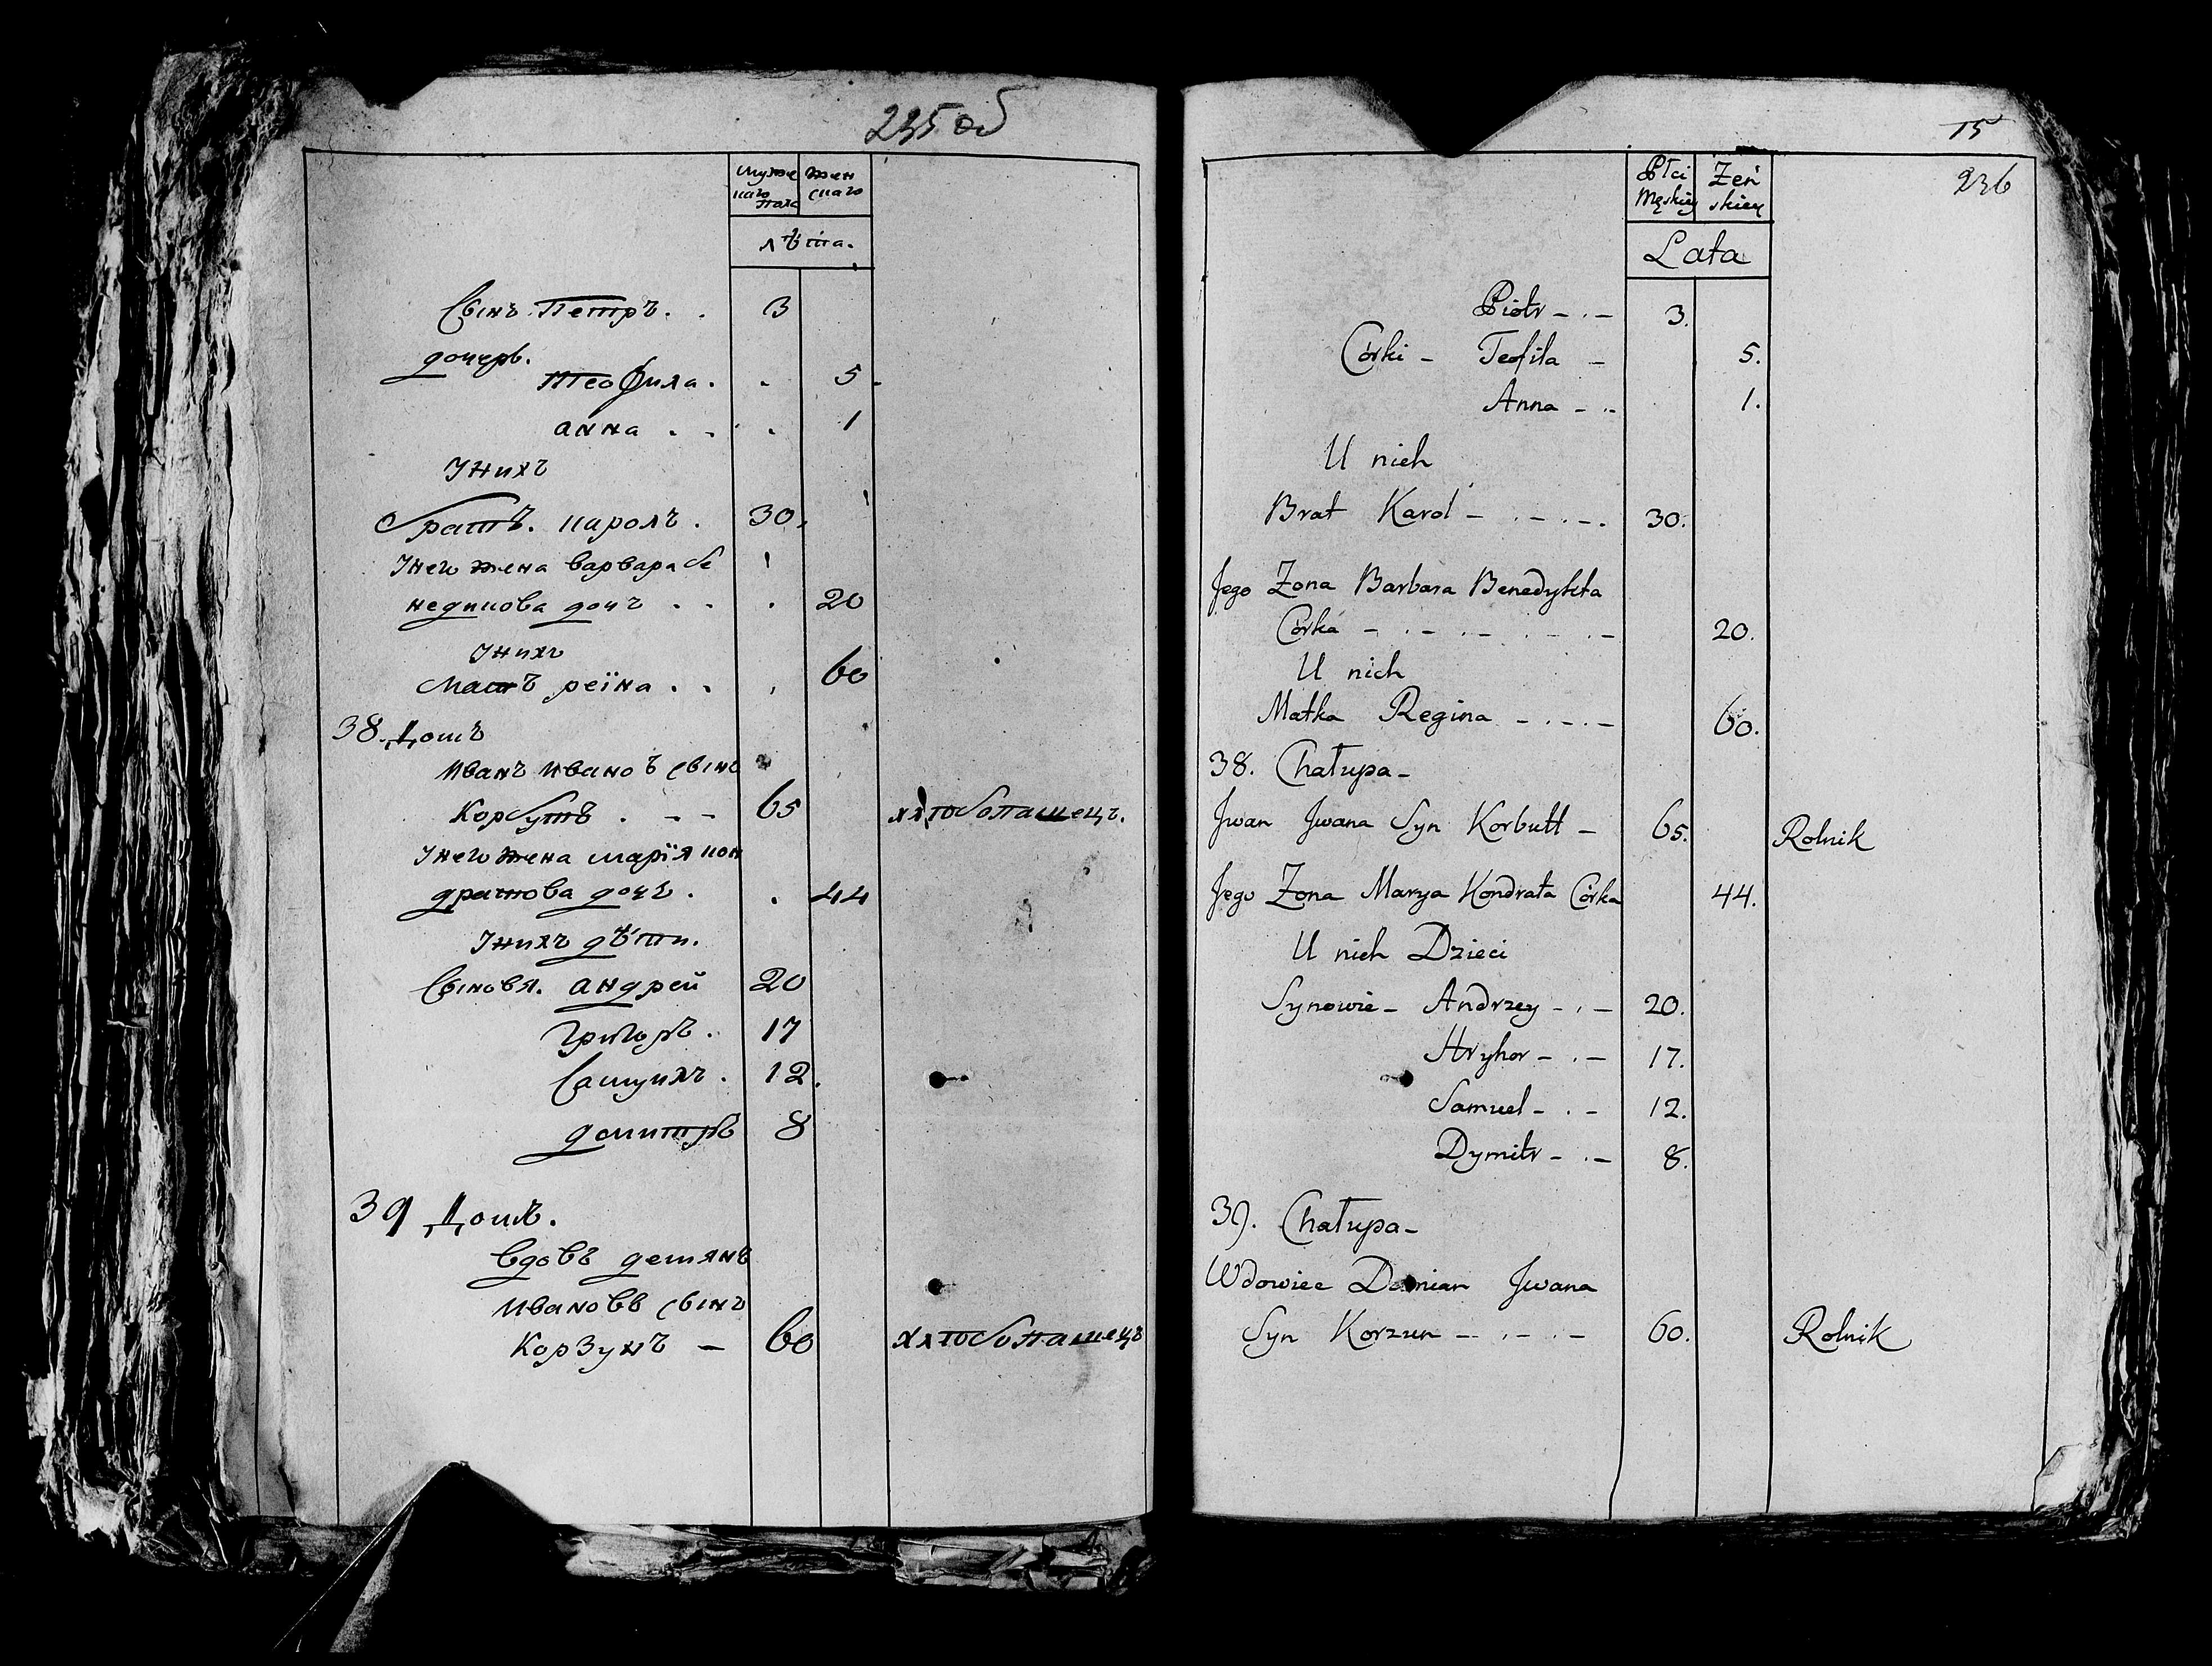 235 об
муже
наго
пола
жен
скаго
лѣта.
Сынъ Петръ. . 3
дочерь.
Теофила. . 5.
анна . . . 1
Унихъ
Братъ. каролъ . 30.
Унего жена варвара бе
недикова дочъ . . . 20
Унихъ
матъ реїна . . . 60
38. Домъ
иванъ ивановъ сынъ
Корбутъ . - - 65 хлѣбопашецъ.
Унего жена марїя кон
дратова дочъ . . 44
Унихъ дѣти.
Сыновя. андрей 20
григоръ . 17
Самуилъ . 12.
дмитръ 8
39 Домъ.
вдовъ демянъ
ивановъ сынъ
Корзунъ - 60 хлѣбопашецъ
15
236
Płci
Męskiey
Żeń
skiey
Lata
Piotr - . - 3.
Córki - Teofila - 5.
Anna - .. 1.
U nich
Brat Karol - . - . - . 30.
Jego Żona Barbara Benedykta
Córka - . - . - . - . - 20.
U nich
Matka Regina - . - . - 60.
38. Chałupa -
Jwan Jwana Syn Korbutt - 65. Rolnik
Jego Żona Marya Kondrata Córka 44.
U nich Dzieci
Synowie - Andrzey - . - 20.
Hryhor - . - 17.
Samuel - . - 12.
Dymitr - . - 8.
39. Chałupa -
Wdowiec Damian Jwana
Syn Korzun - . - . - 60. Rolnik